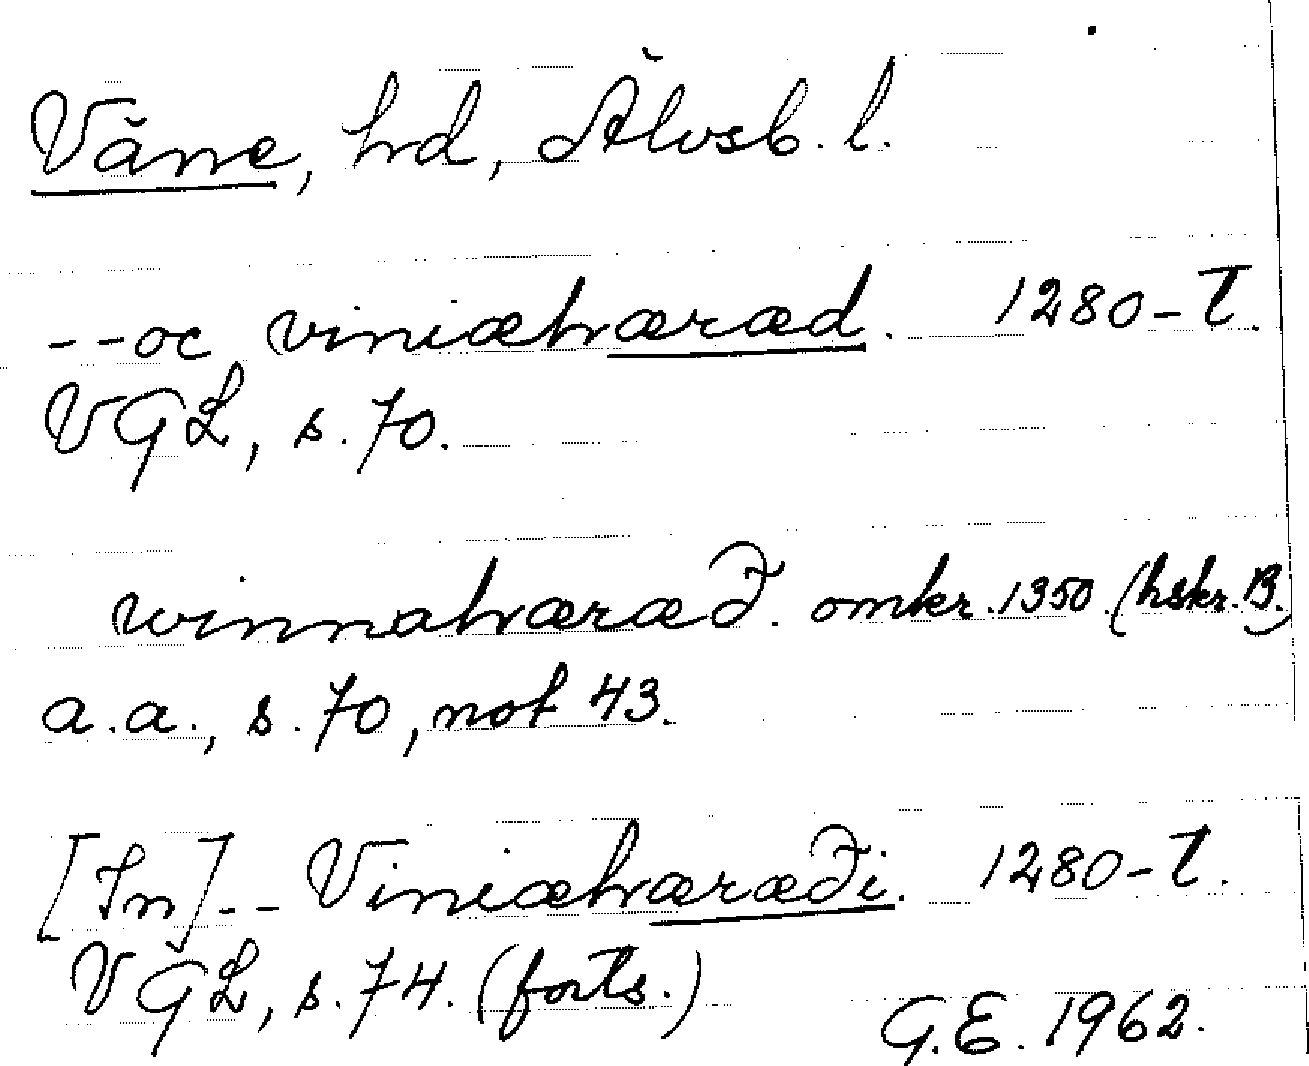 Väne, hd, Älvsb. l.
--oc viniæhæræd. 1280-t.
VGL, s. 70.
winnahæræð. omkr. 1350. (hskr. B.)
a.a., s. 70, not 43.
[In]-- Viniæhæræði. 1280-t.
VGL, s. 74. (forts.)
G.E. 1962.